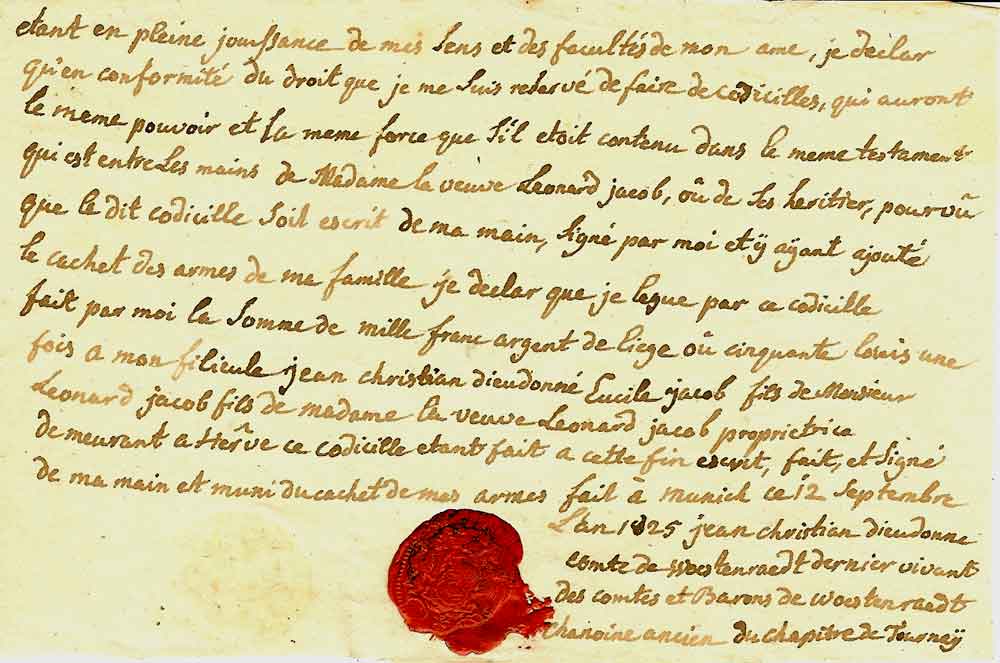 etant en pleine jouissance de mes sens et des facultés de mon ame, je declar
qu'en conformité du droit que je me suis reservé de faire de codicilles, qui auront
le meme pouvoir et la meme force que s'il etoit contenu dans le meme testament
qui est entre les mains de Madame la veuve Leonard jacob, oû de ses heritier, pourvû
que le dit codicille soit escrit de ma main, signé par moi et ÿ aÿant ajouté
le cachet des armes de ma famille je declar que je legue par ce codicille
fait par moi la somme de mille franc argent de liege oû cinquante louis une
fois a mon filieule jean christian dieudonné Lucile jacob fils de Monsieur
Leonard jacob fils de madame la veuve Leonard jacob proprietrice
demeurant a Herve ce codicille etant fait a cette fin escrit, fait, et signé
de ma main et muni du cachet de mes armes fait à munich ce 12 septembre
L'an 1825 jean christian dieudonne
comte de Woestenraedt dernier vivant
des comtes et Barons de woestenraedt
Chanoine ancien du chapitre de Tourneÿ